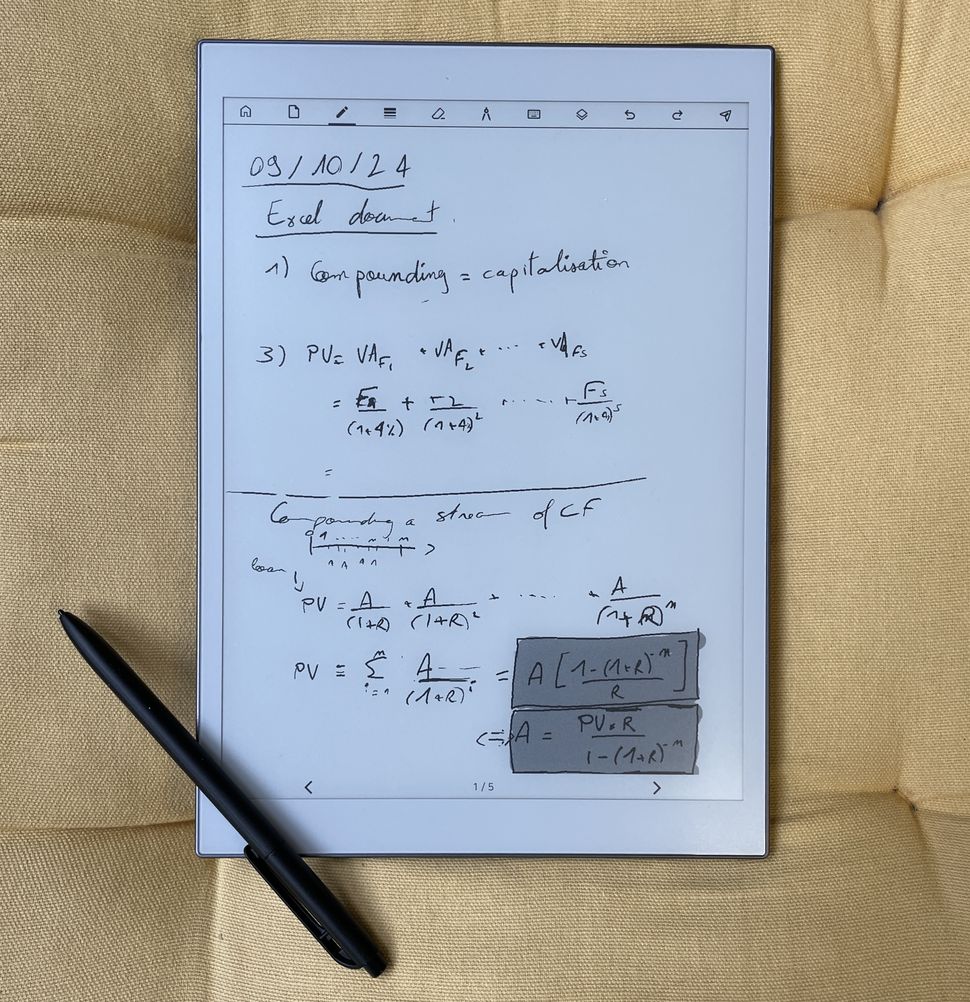 09/10/24
Excel document.
1) Compounding = capitalisation
3) PV = VA_F₁ + VA_F₂ + ... + VA_F₅
= F₁/(1+4%) + F2/(1+4)² ...... + F₅/(1+4)⁵
=
Compounding a stream of CF
0 1 .... n
loan
PV = A/(1+R) + A/(1+R)² + ..... + A/(1+R)ⁿ
PV = ∑ⁿᵢ₌₁ A/(1+R)ⁱ = A[(1-(1+R)⁻ⁿ)/R]
<=> A = PV×R/(1-(1+R)⁻ⁿ)
1/5